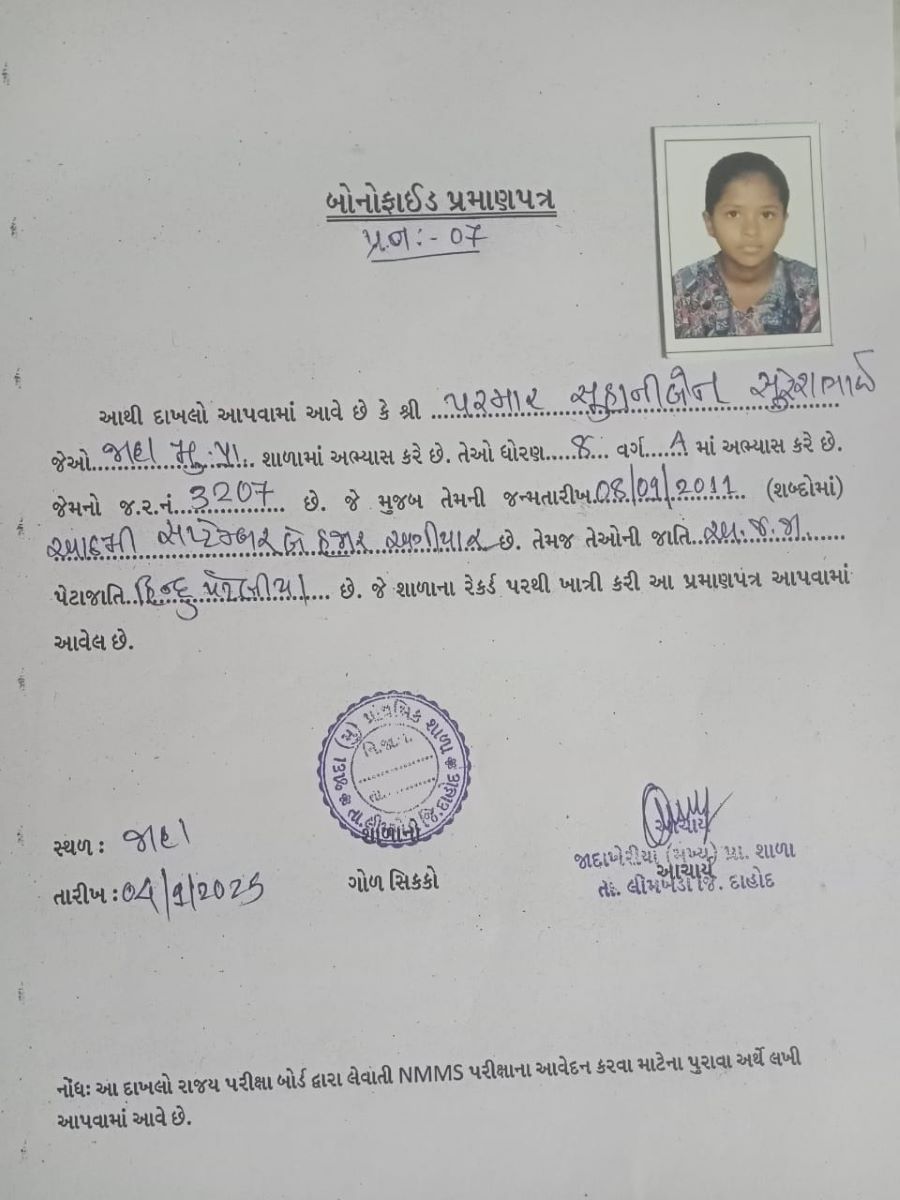 બોનોફાઈડ પ્રમાણપત્ર
પ્ર.નં:- 07
આથી દાખલો આપવામાં આવે છે કે શ્રી ...પરમાર સુહાનીબેન સુરેશભાઈ
જેઓ...જાદા મુ.પ્રા... શાળામાં અભ્યાસ કરે છે. તેઓ ધોરણ.....8... વર્ગ....A માં અભ્યાસ કરે છે.
જેમનો જ.ર.નં...3207............ છે. જે મુજબ તેમની જન્મતારીખ.08/09/2011... (શબ્દોમાં)
આઠમી સપ્ટેમ્બર બે હજાર અગીયાર છે. તેમજ તેઓની જાતિ...અ.જ.જા......
પેટાજાતિ..હિન્દુ .... છે. જે શાળાના રેકર્ડ પરથી ખાત્રી કરી આ પ્રમાણપત્ર આપવામાં
આવેલ છે.
(મુ) પ્રાથમિક શાળા
જિ.દાહોદ
શાળાનો
ગોળ સિક્કો
સ્થળ : જાદા
તારીખ : 04/9/2025
આચાર્ય
જાદાખેરીયા (મુખ્ય) પ્રા. શાળા
આચાર્ય
તા. લીમખેડા જિ. દાહોદ
નોંધઃ આ દાખલો રાજય પરીક્ષા બોર્ડ દ્વારા લેવાતી NMMS પરીક્ષાના આવેદન કરવા માટેના પુરાવા અર્થે લખી
આપવામાં આવે છે.